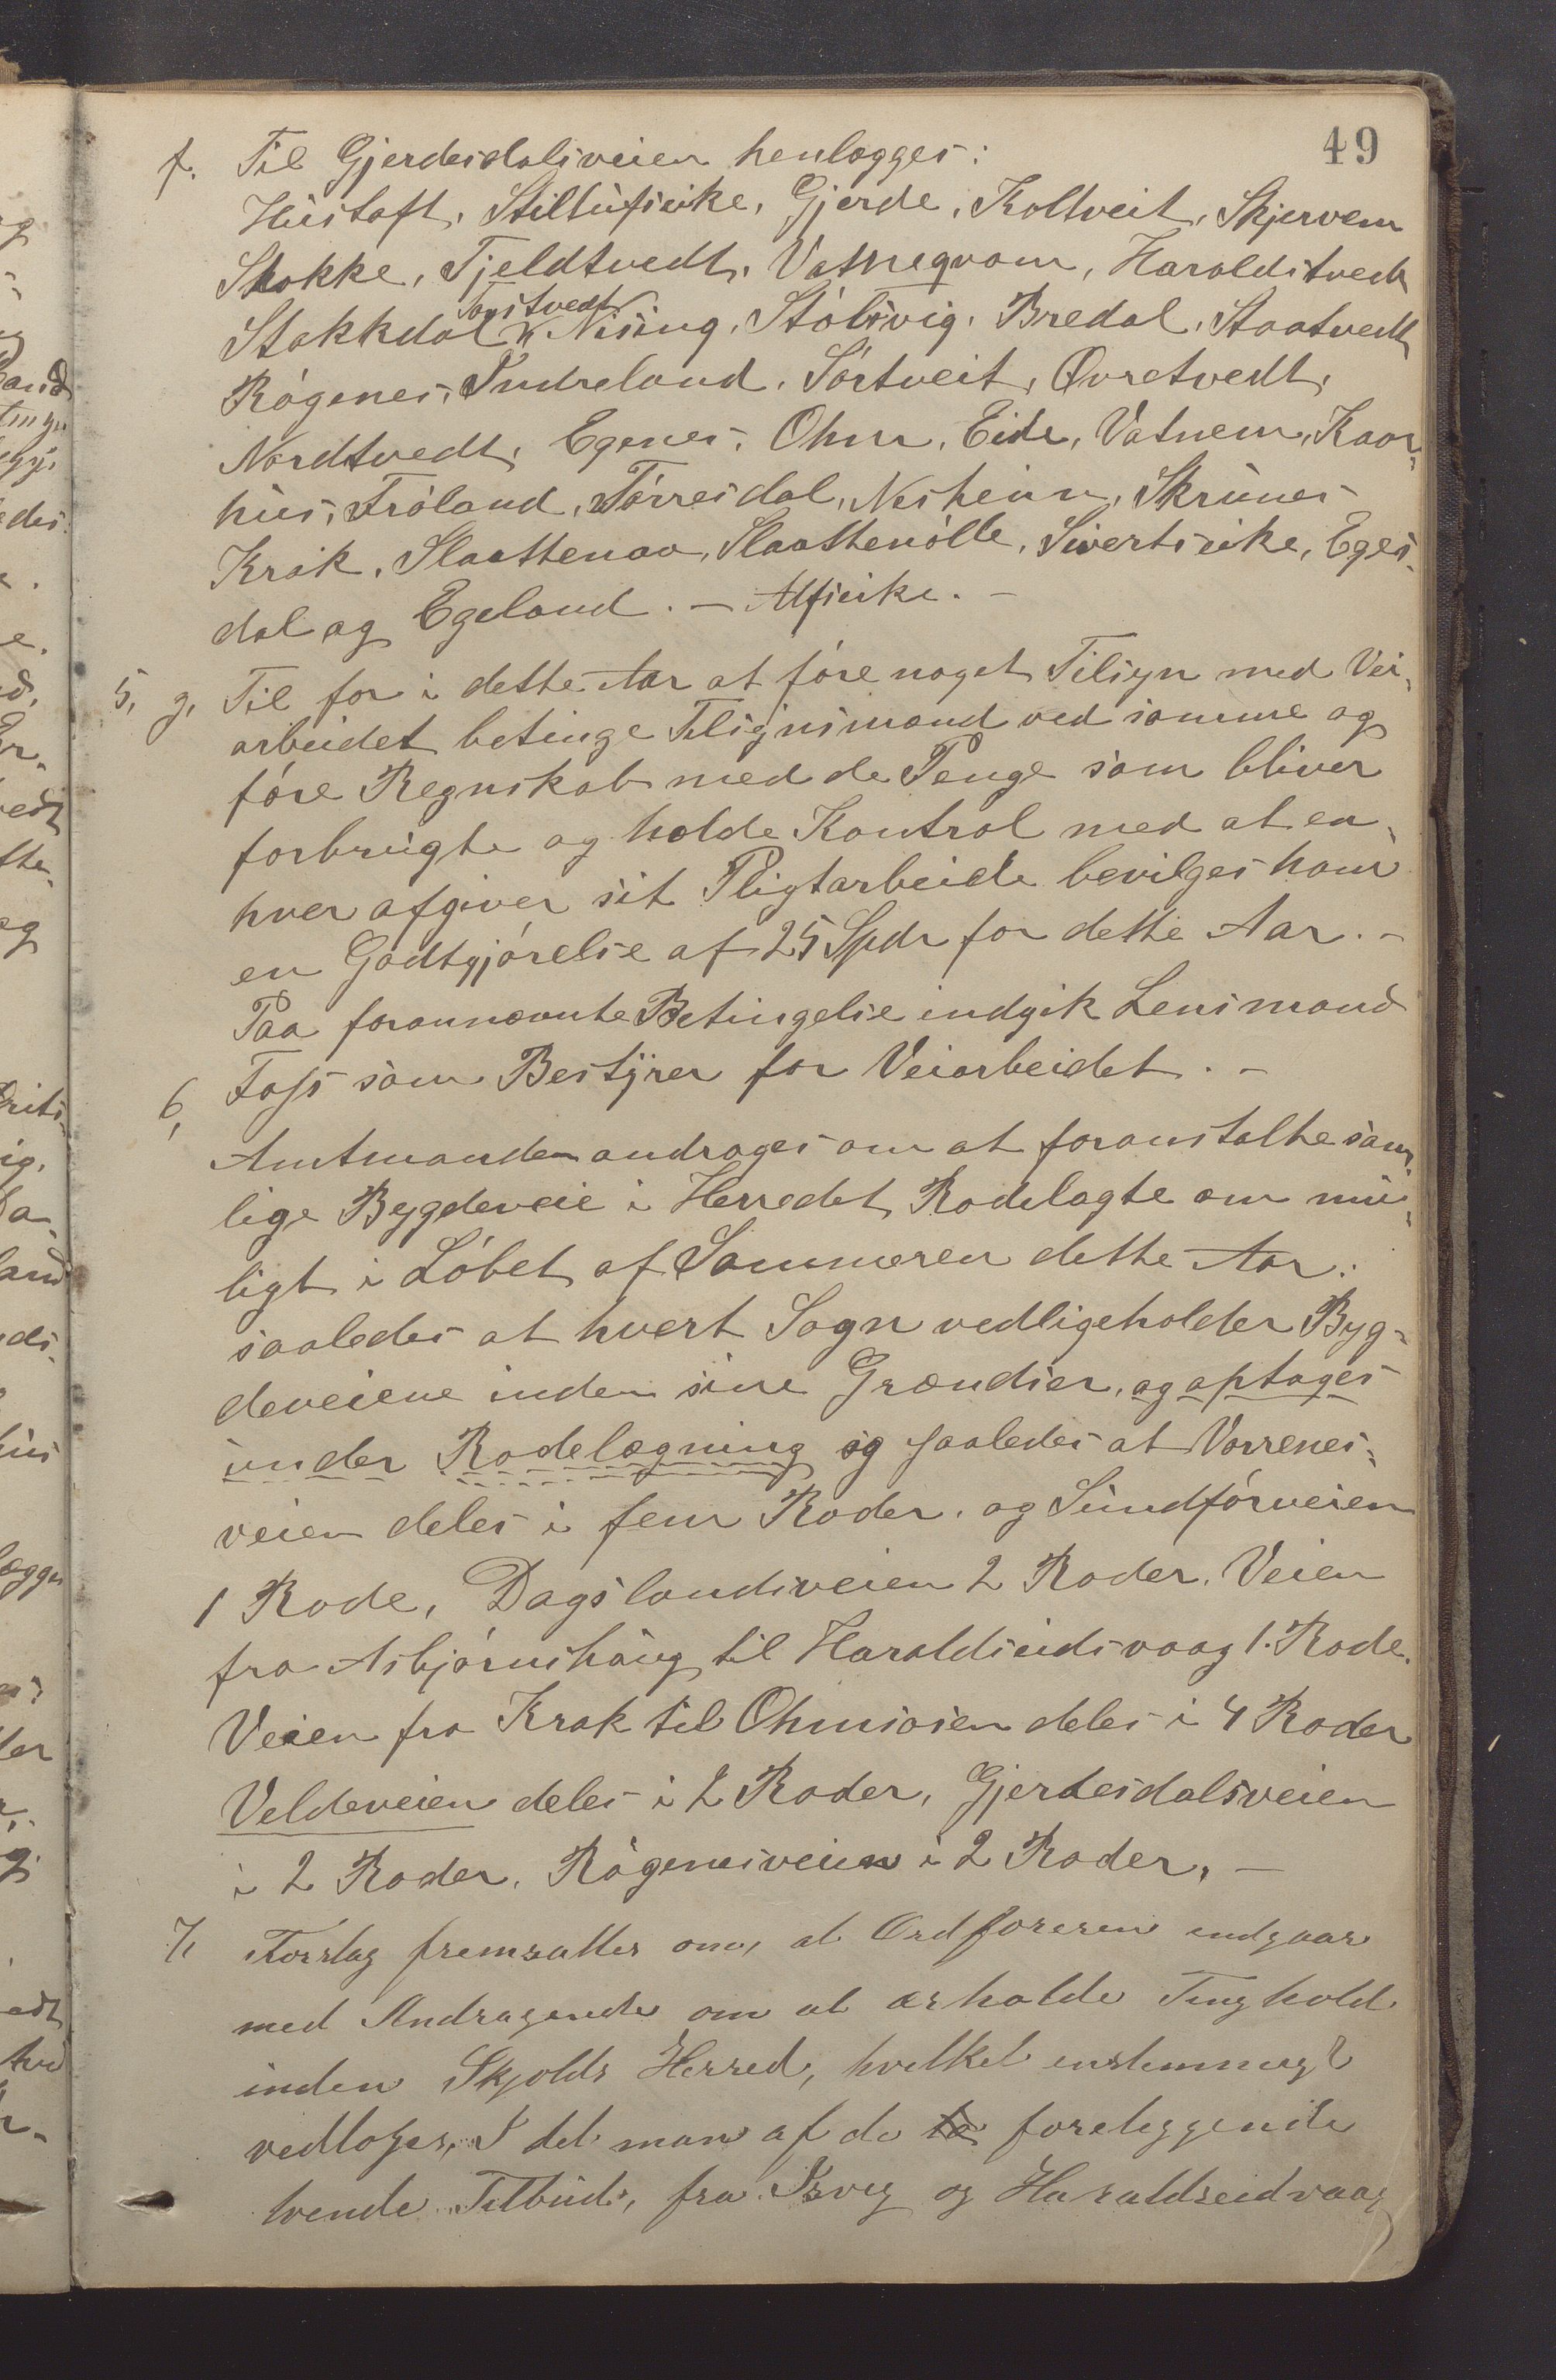 49
f. Til Gjerdesdalsveien henlægges:
Hustoft, Stillufseike, Gjerde, Koltveit, Skjervem
Stokke, Tjeldtvedt, Vatneqvam, Haraldstvedt
Tostvedt
Stakkdal, Nising, Stölsvig, Bredal, Staatvedt
Rögenes, Indreland, Sörtveit, Øvretvedt,
Nordtvedt, Egenes, Ohm, Eide, Vatnem, Kaar-
hus, Fröland, Törresdal, Nesheim, Skrunes
Krak, Slaattenaa, Slaattenölle, Sivertseike, Eges-
dal og Egeland. — Alfseike. —
5, g, Til for i dette Aar at före noget Tilsyn med Vei-
arbeidet betinge Tilsynsmænd ved samme og
före Regnskab med de Penge som bliver
forbrugte og holde Kontrol med at en-
hver afgiver sit Pligtarbeide bevilges ham
en Godtgjörelse af 25 Spdr for dette Aar. —
Paa forannævnte Betingelse indgik Lensmand
Foss som Bestyrer for Veiarbeidet. —
6,
Amtmanden andrages om at foranstalte sam-
lige Bygdeveie i Herredet Rodelagte om mu-
ligt i Löbet af Sommeren dette Aar:
saaledes at hvert Sogn vedligeholder Byg-
deveiene inden sine Grændser, og optages
under Rodelægning og saaledes at Vorrenes-
veien deles i fem Roder, og Sundförveien
1 Rode, Dagslandsveien 2 Roder, Veien
fra Asbjörnshaug til Haraldseidsvaag 1 Rode.
Veien fra Krak til Ohmsosen deles i 4 Roder
Veldeveien deles i 2 Roder, Gjerdesdalsveien
i 2 Roder, Rögenesveien i 2 Roder. —
7, Forslag fremsattes om, at Ordføreren indgaar
med Andragende om at erholde Tinghold
inden Skjolds Herred, hvilket enstemmigt
vedtoges, I det man af de to foreliggende
tvende Tilbud, fra Isvig og Haraldseidvaag